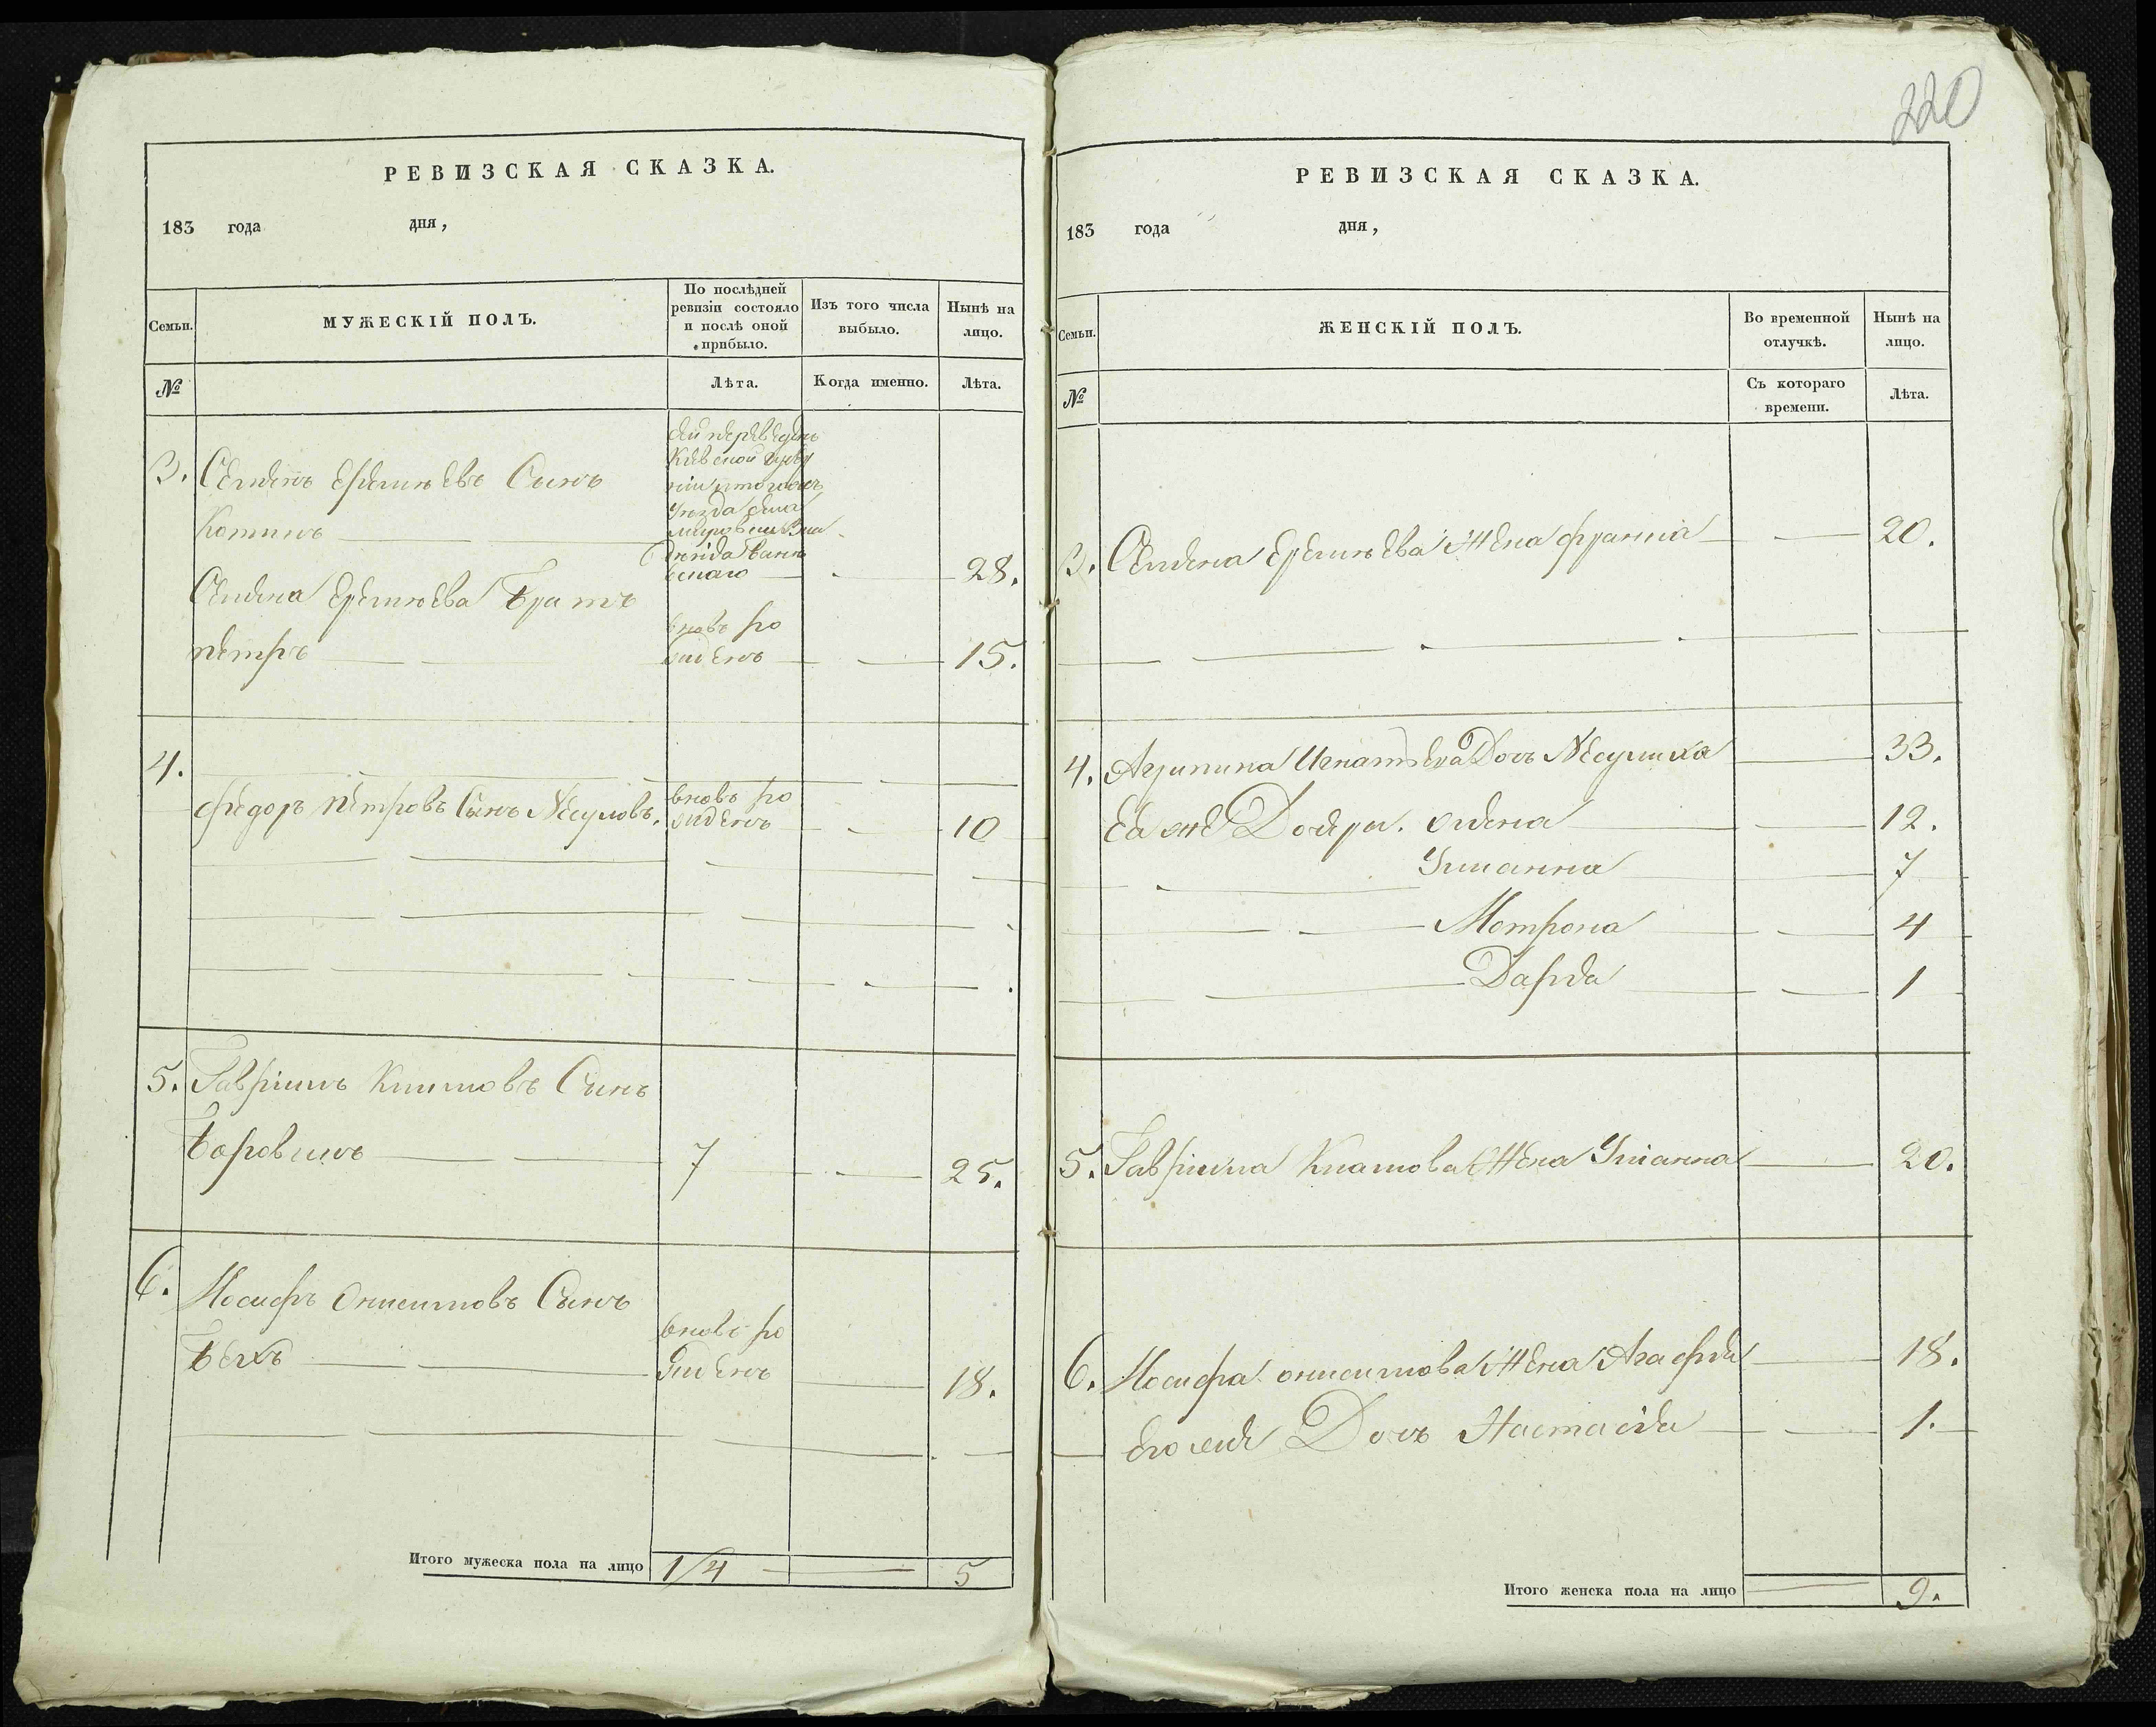 220
РЕВИЗСКАЯ СКАЗКА.
183 года дня,
Семьи.
МУЖЕСКІЙ ПОЛЪ.
По послѣдней
ревизіи состояло
и послѣ оной
прибыло.
Изъ того числа
выбыло.
Нынѣ на
лицо.
№
Лѣта.
Когда именно.
Лѣта.
3. Семенъ Еремѣевъ Сынъ
Котинъ 28.
Семена Еремѣева Братъ
вновь ро
петръ жденъ 15.
4.
федоръ петровъ Сынъ вновь ро
жденъ 10
5. Гавріилъ Климовъ Сынъ
7 25.
6. Иосифъ Онисимовъ Сынъ
вновь ро
жденъ 18.
Итого мужеска пола на лицо 1/4 5
РЕВИЗСКАЯ СКАЗКА.
183 года дня,
Семьи.
ЖЕНСКІЙ ПОЛЪ.
Во временной
отлучкѣ.
Нынѣ на
лицо.
№
Съ котораго
времени.
Лѣта.
3. Семена Еремѣева Жена 20.
4. Агрипина Игнатьева Дочь 33.
Ея же Дочери. 12.
Улианна 7
Мотрона 4
Дарья 1
5. Гавріила Климова Жена Улианна 20.
6. Иосифа онисимова Жена Агафья 18.
Дочь Настасія 1.
Итого женска пола на лицо 9.